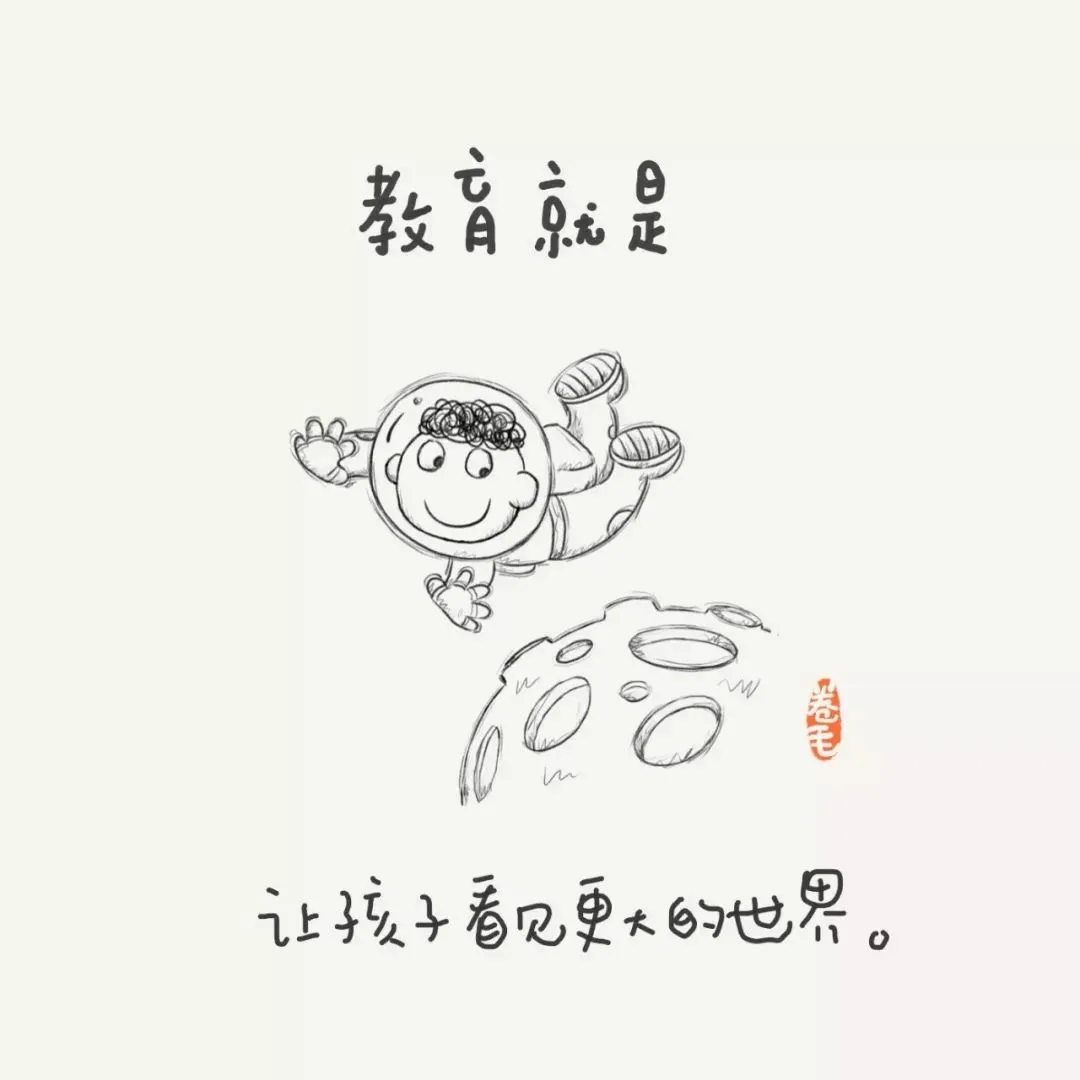 教育就是
卷毛
让孩子看见更大的世界。